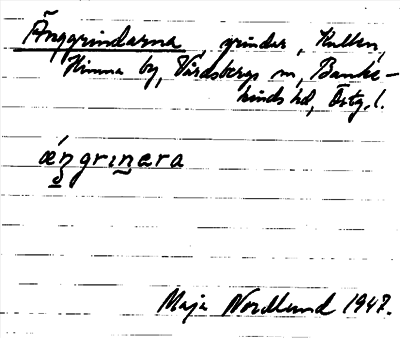 Änggrindarna, grindar, Kullen,
Himna by, Vårdsbergs sn, Banke-
kinds hd, Östg. l.
ǽngrınara
Maja Nordlund 1947.